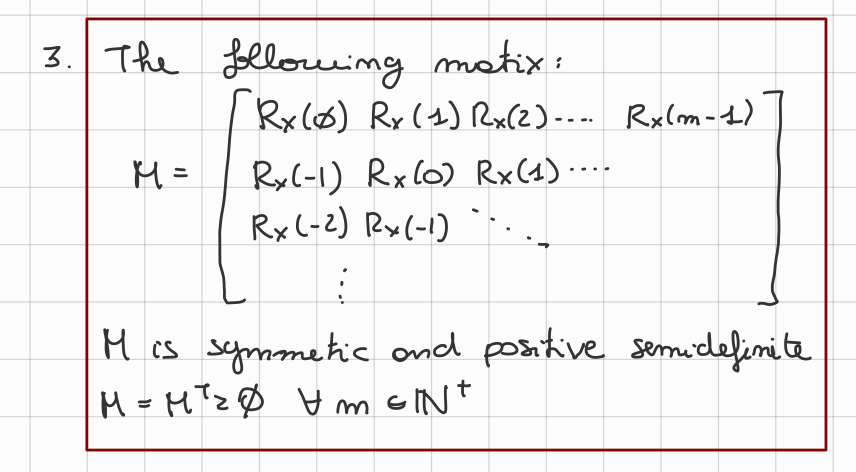 3. The following matix:
Rx(ø) Rx(1) Rx(2) .... Rx(m-1)
M = Rx(-1) Rx(0) Rx(1) ....
Rx(-2) Rx(-1) ⋱
⋮
M is symmetric and positive semidefinite
M = Mᵀ ≥ ø ∀ m ∈ ℕ⁺